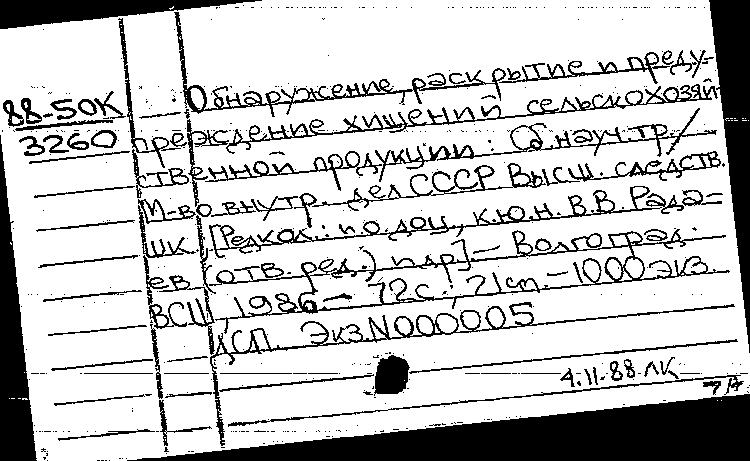 88-50К
3260
Обнаружение, раскрытие и преду-
преждение хищений сельскохозяй
ственной продукции : Сб. науч. тр. /
М-во внутр. дел СССР Высш. следств.
шк. ; [Редкол.: п.о. доц., к.ю.н. В.В. Рада=
ев (отв. ред.) и др.] — Волгоград :
ВСШ, 1986. — 72 с. ; 21 см. — 1000 экз.
ДСП. Экз. N 000005
4.11.88 ЛК